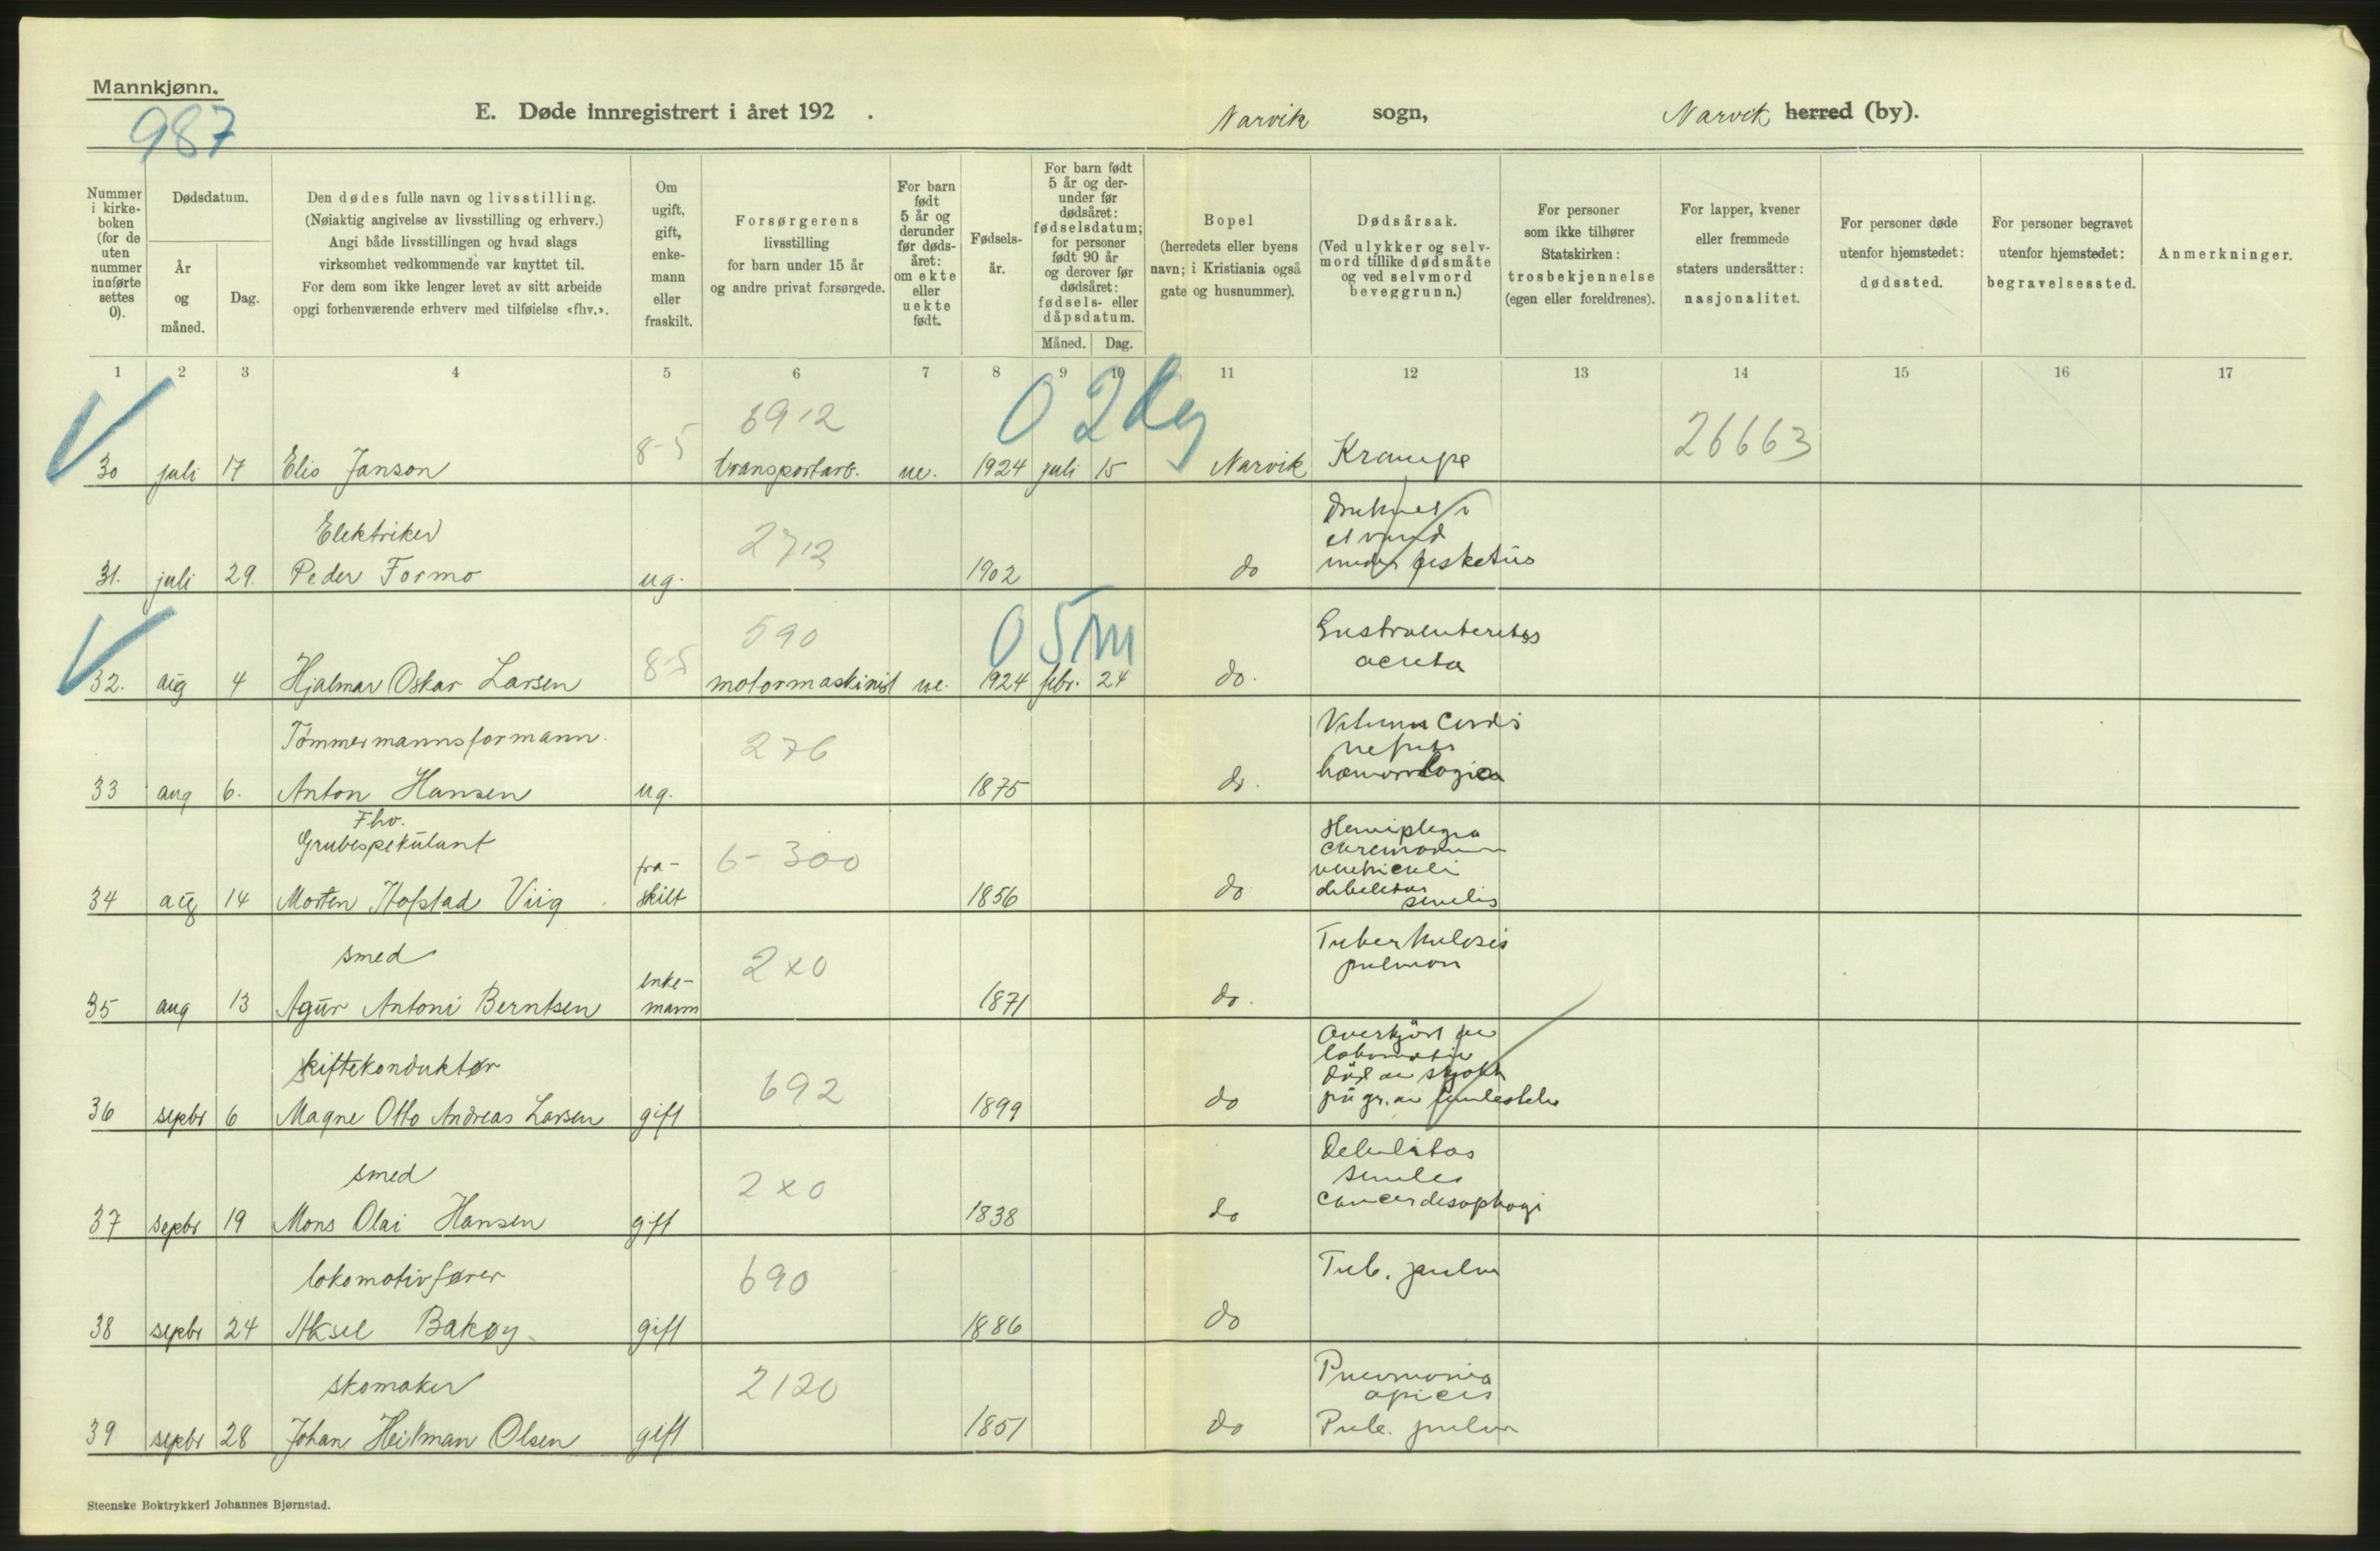 Mannkjønn.
987
E. Døde innregistrert i året 192 . Narvik sogn, Narvik herred (by).
Nummer i kirkeboken (for de uten nummer innførte settes 0).
Dødsdatum.
År og måned.
Dag.
Den dødes fulle navn og livsstilling.
(Nøiaktig angivelse av livsstilling og erhverv.)
Angi både livsstillingen og hvad slags
virksomhet vedkommende var knyttet til.
For dem som ikke lenger levet av sitt arbeide
opgi forhenværende erhverv med tilføielse «fhv.».
Om ugift, gift, enkemann eller fraskilt.
Forsørgerens
livsstilling
for barn under 15 år
og andre privat forsørgede.
For barn født 5 år og derunder før dødsåret: om ekte eller uekte født.
Fødselsår.
For barn født 5 år og derunder før dødsåret: fødselsdatum; for personer født 90 år og derover før dødsåret: fødsels- eller dåpsdatum.
Måned. Dag.
Bopel
(herredets eller byens
navn; i Kristiania også
gate og husnummer).
Dødsårsak.
(Ved ulykker og selvmord tillike dødsmåte
og ved selvmord
beveggrunn.)
For personer
som ikke tilhører
Statskirken:
trosbekjennelse
(egen eller foreldrenes).
For lapper, kvener
eller fremmede
staters undersåtter:
nasjonalitet.
For personer døde
utenfor hjemstedet:
dødssted.
For personer begravet
utenfor hjemstedet:
begravelsessted.
Anmerkninger.
1 2 3 4 5 6 7 8 9 10 11 12 13 14 15 16 17
6912 0 2 dg 26663
30 juli 17 Elis Janson 8-5 transportarb. ue. 1924 juli 15 Narvik Krampe
Elektriker 2712 Druknet i
et vand
31. juli 29. Peder Formo ug. 1902 do under fisketur
590 0 5 m Gastroenteritis
acuta
32. aug 4 Hjalmar Oskar Larsen 8-5 motormaskinist ue. 1924 febr. 24 do.
Tømmermannsformann 276 Vitium Cordis
33 aug 6. Anton Hansen ug. 1875 do.
Fhv.
Grubespekulant 6-300 Hemiplegia
ventriculi
debilitas
senilis
34 aug 14 Morten Hofstad Viig fraskilt 1856 do
smed 2x0 Tuberkulosis
pulmon
35 aug 13 Agur Antoni Berntsen enkemann 1871 do.
skiftekonduktør 692 Overkjørt av
lokomotiv
død av sjokk
36 sepbr 6 Magne Otto Andreas Larsen gift 1899 do på gr. av
smed 2x0 Debilitas
senilis
37 sepbr 19 Mons Olai Hansen gift 1838 do Cancer
lokomotivfører 690 Tub. pulm
38 sepbr 24 Aksel Bakøy gift 1886 do
skomaker 2120 Pneumonia
apicis
39 sepbr 28 Johan Heilman Olsen gift 1851 do pulm
Steenske Boktrykkeri Johannes Bjørnstad.